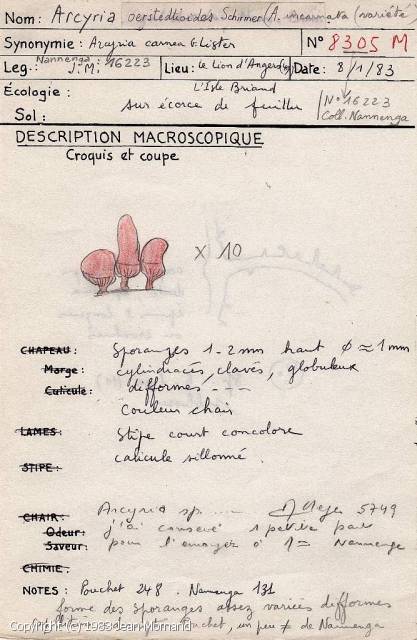 Nom: Arcyria oerstedtioides Schirmer (A. incarnata (variété
Synonymie: Arcyria carnea G. Lister N° 8305 M
Leg.: Nannenga: 16223 J.M. Lieu: le Lion d'Angers Date: 8/1/83
Écologie: L'Isle Briand
sur écorce de feuillu N° 16223
Sol: Coll. Nannenga
DESCRIPTION MACROSCOPIQUE
Croquis et coupe
x 10
CHAPEAU: Sporanges 1-2mm haut φ ≈ 1mm
Marge: cylindracés, clavés, globuleux
Cuticule: difformes, - - -
Couleur chair
LAMES: Stipe court concolore
calicule sillonné.
STIPE:
CHAIR: Arcyria sp. 5749
Odeur: j'ai conservé 1 petite part
Saveur: pour l'envoyer à Nannenga
CHIMIE:
NOTES: Pouchet 248. Nannenga 131
forme des sporanges assez variées difformes
Pouchet, un peu ≠ de Nannenga
Copyright (c) 1983 Jean Mornand